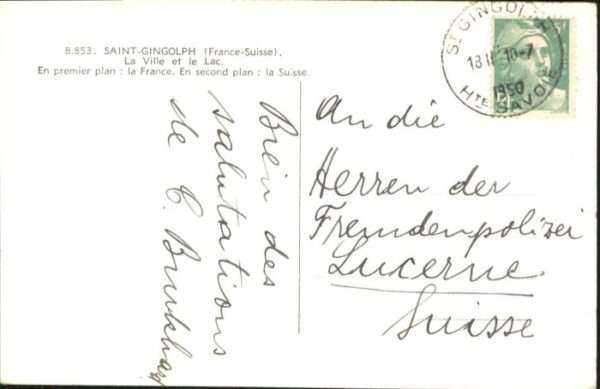 8.853. SAINT-GINGOLPH (France-Suisse).
La Ville et le Lac.
En premier plan : la France. En second plan : la Suisse.
ST GINGOLPH
10-7
1950
HTE SAVOIE
An die
Herren der
Fremdenpolizei
Lucerne
Suisse
Bien des
salutations
de C. Burkhar